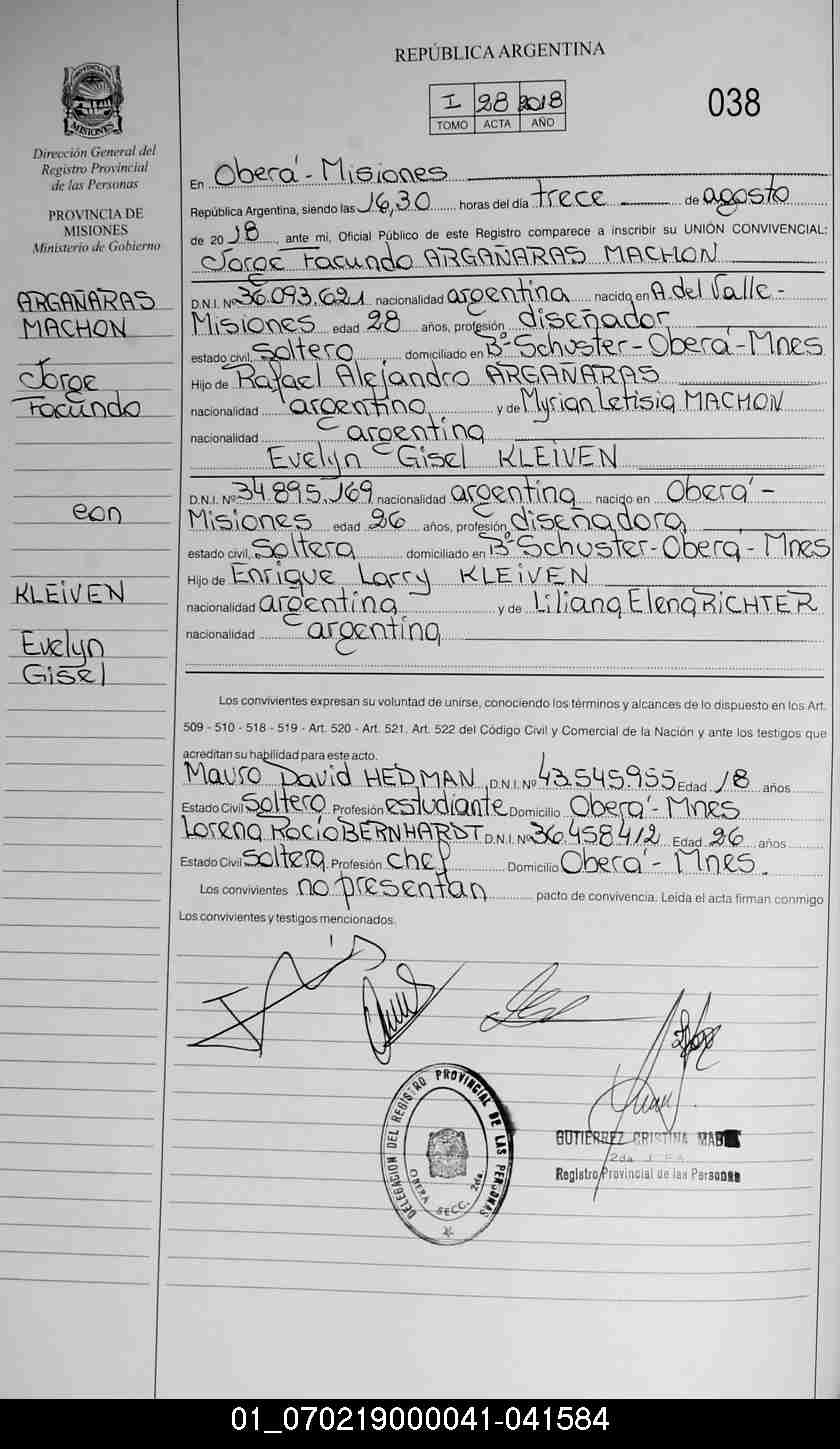 REPÚBLICA ARGENTINA
I 28 2018
TOMO ACTA AÑO
038
PROVINCIA DE MISIONES
Dirección General del
Registro Provincial
de las Personas
PROVINCIA DE
MISIONES
Ministerio de Gobierno
ARGAÑARAS
MACHON
Jorge
Facundo
con
KLEIVEN
Evelyn
Gisel
En Oberá - Misiones
República Argentina, siendo las 16,30 horas del día trece de agosto
de 2018, ante mi, Oficial Público de este Registro comparece a inscribir su UNIÓN CONVIVENCIAL:
Jorge Facundo ARGAÑARAS MACHON
D.N.I. Nº 36.093.621 nacionalidad argentina nacido en A. del Valle -
Misiones edad 28 años, profesión diseñador
estado civil, Soltero domiciliado en Bº Schuster - Oberá - Mnes
Hijo de Rafael Alejandro ARGAÑARAS
nacionalidad argentino y de Myrian Letisia MACHON
nacionalidad argentina
Evelyn Gisel KLEIVEN
D.N.I. Nº 34.895.169 nacionalidad argentina nacido en Oberá -
Misiones edad 26 años, profesión diseñadora
estado civil, Soltera domiciliado en Bº Schuster - Oberá - Mnes
Hijo de Enrique Larry KLEIVEN
nacionalidad argentina y de Liliana Elena RICHTER
nacionalidad argentina
Los convivientes expresan su voluntad de unirse, conociendo los términos y alcances de lo dispuesto en los Art.
509 - 510 - 518 - 519 - Art. 520 - Art. 521, Art. 522 del Código Civil y Comercial de la Nación y ante los testigos que
acreditan su habilidad para este acto.
Mauro David HEDMAN D.N.I. Nº 43.545.955 Edad 18 años
Estado Civil Soltero Profesión estudiante Domicilio Oberá - Mnes
Lorena Rocío BERNHARDT D.N.I. Nº 36.458412 Edad 26 años
Estado Civil Soltera Profesión chef Domicilio Oberá - Mnes.
Los convivientes no presentan pacto de convivencia. Leída el acta firman conmigo
Los convivientes y testigos mencionados.
DELEGACION DEL REGISTRO PROVINCIAL DE LAS PERSONAS
OBERA SECC. 2da.
GUTIERREZ CRISTINA
2da
Registro Provincial de las Personas
01_070219000041-041584